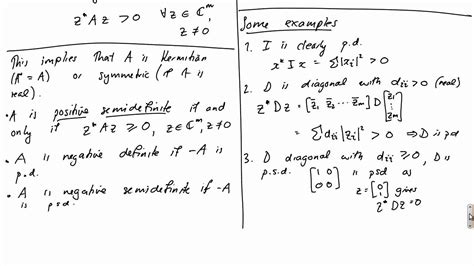 z* A z > 0 ∀ z ∈ ℂ^m,
z ≠ 0
This implies that A is Hermitian
(A* = A) or symmetric (if A is
real).
• A is positive semidefinite if and
only if z* A z ≥ 0, z ∈ ℂ^m, z ≠ 0
• A is negative definite if -A is
p.d.
• A is negative semidefinite if -A
is psd.
Some examples
1. I is clearly p.d.
x* I x = Σ|x_i|² > 0
2. D is diagonal with d_ii > 0 (real)
z* D z = [z̄_1 z̄_2 ... z̄_m] D [z_1 ⋮ z_m]
= Σ d_ii |z_i|² > 0 ⇒ D is pd
3. D diagonal with d_ii ≥ 0, D is
p.s.d. [1 0; 0 0] is psd as
z = [0; 1] gives
z* D z = 0